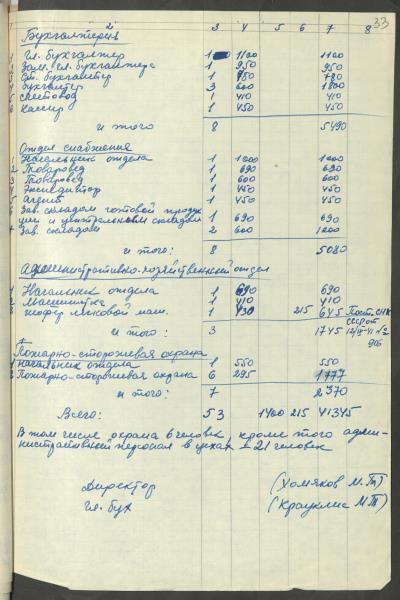 2 3 4 5 6 7 8 33
Бухгалтерия
1 Гл. бухгалтер 1 1100 1100
Зам. гл. бухгалтера 1 950 950
Ст. бухгалтер 1
бухгалтер 3 600 1800
счетовод 1 410 410
6 Кассир 1 450 450
и того 8 5490
Отдел снабжения
1 Начальник отдела 1 1000 1000
2 Товаровед 1 690 690
3 Товаровед 1 600 600
4 Экспедитор 1 450 450
5 Агент 1 450 450
6 Зав. складом готовой продук
ции и центральным складом 1 690 690
7 Зав. складом 2 600 1200
и того: 8 5080
Административно-хозяйственный отдел
1 Начальник отдела 1 690 690
2 Машинистка 1 410 410
3 шофер легковой маш. 1 430 215 645 Пост. СНК
и того: 3 1745
Пожарно-сторожевая охрана
1 Начальник отдела 1 550 550
2 Пожарно-сторожевая охрана 6 295 1777
и того: 7 2370
Всего: 53 1400 215 41345
В том числе охрана 6 человек кроме того адми-
нистративный персонал в цехах – 21 человек
Директор (Хомяков М.П)
Гл. бух (Крауклис М.П)